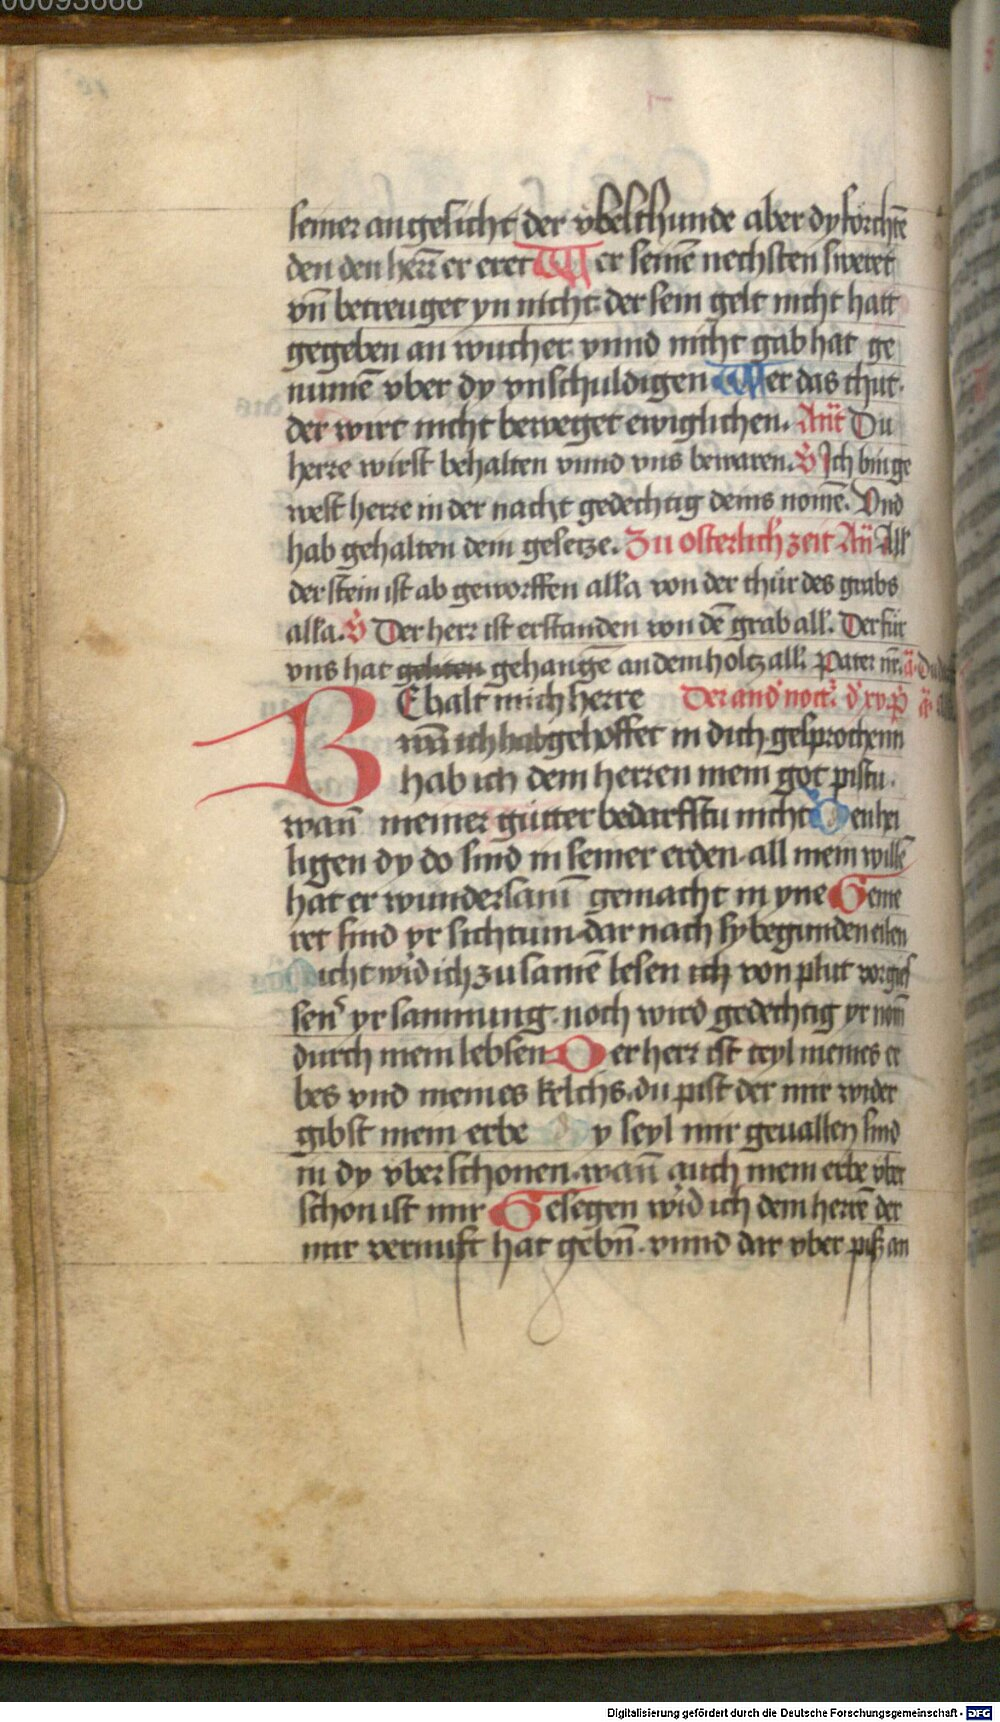 00093668
seiner angesicht der vbelthunde aber dy förchtē
den den herrē er eret Wer seinē nechsten sweret
vn̄ betreuget yn nicht. der sein gelt nicht hatt
gegeben an wucher vnnd nicht gab hat ge
numē vber dy vnschuldigen Wer das thut.
der wirt nicht beweget ewiglichen. Ant̄ Du
herre wirst behalten vnnd vns bewaren. V̄ Ich bin ge
west herre in der nacht gedechtig deins nomē. Vnd
hab gehalten dein gesetze. Zu osterlich̄ zeit An̄ All
der stein ist ab geworffen alla von der thür des grabs
alla. V̄ Der herr ist erstanden von dē grab all. Der für
vns hat gehangē an dem holtz all. Pater nr̄.
BEhalt mich herre Der and̄ noct̄. d̄ xv. p̄
wan̄ ich hab gehoffet in dich gesprochenn
hab ich dem herren mein got pistu.
wan̄ meiner gütter bedarffstu nicht Den hei
ligen dy do sind in seiner erden. all mein willē
hat er wundersam gemacht in yne Geme
ret sind yr sichtum dar nach sy begunden eilen
Nicht wird ich zu samē lesen ich von plut vorgies
sen̄ yr samnung. noch wird gedechtig yr nom̄
durch mein lebsen Der herr ist teyl meines er
bes vnd meines kelchs. du pist der mir wider
gibst mein erbe Dy seyl mir geuallen sind
in dy vberschonen. wan̄ auch mein erbe vber
schon ist mir Gesegen wird ich dem herrē der
mir vernuft hat gebn̄. vnnd dar vber piß an
Digitalisierung gefördert durch die Deutsche Forschungsgemeinschaft - DFG